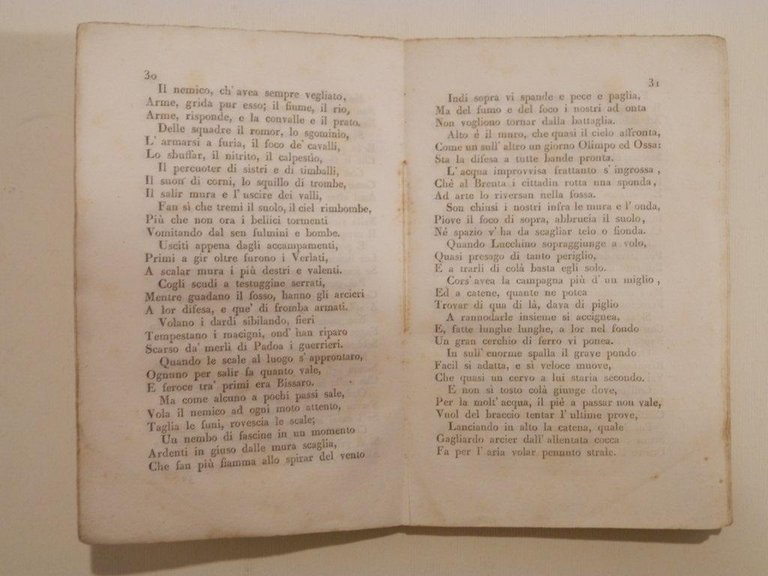 30
Il nemico, ch' avea sempre vegliato,
Arme, grida pur esso; il fiume, il rio,
Arme, risponde, e la convalle e il prato.
Delle squadre il romor, lo sgominio,
L' armarsi a furia, il foco de' cavalli,
Lo sbuffar, il nitrito, il calpestìo,
Il percuoter di sistri e di timballi,
Il suon di corni, lo squillo di trombe,
Il salir mura e l' uscire dei valli,
Fan sì che tremi il suolo, il ciel rimbombe,
Più che non ora i bellici tormenti
Vomitando dal sen fulmini e bombe.
Usciti appena dagli accampamenti,
Primi a gir oltre furono i Verlati,
A scalar mura i più destri e valenti.
Cogli scudi a testuggine serrati,
Mentre guadano il fosso, hanno gli arcieri
A lor difesa, e que' di fromba armati.
Volano i dardi sibilando, fieri
Tempestano i macigni, ond' han riparo
Scarso da' merli di Padoa i guerrieri.
Quando le scale al luogo s' approntaro,
Ognuno per salir fa quanto vale,
E feroce tra' primi era Bissaro.
Ma come alcuno a pochi passi sale,
Vola il nemico ad ogni moto attento,
Taglia le funi, rovescia le scale;
Un nembo di fascine in un momento
Ardenti in giuso dalle mura scaglia,
Che fan più fiamma allo spirar del vento
31
Indi sopra vi spande e pece e paglia,
Ma del fumo e del foco i nostri ad onta
Non vogliono tornar dalla battaglia.
Alto è il muro, che quasi il cielo affronta,
Come un sull' altro un giorno Olimpo ed Ossa:
Sta la difesa a tutte bande pronta.
L' acqua improvvisa frattanto s' ingrossa,
Chè al Brenta i cittadin rotta una sponda,
Ad arte lo riversan nella fossa.
Son chiusi i nostri infra le mura e l' onda,
Piove il foco di sopra, abbrucia il suolo,
Nè spazio v' ha da scagliar telo o fionda.
Quando Lucchino sopraggiunge a volo,
Quasi presago di tanto periglio,
E a trarli di colà basta egli solo.
Cors' avea la campagna più d' un miglio,
Ed a catene, quante ne potea
Trovar di qua di là, dava di piglio
A rannodarle insieme si accignea,
E, fatte lunghe lunghe, a lor nel fondo
Un gran cerchio di ferro vi ponea.
In sull' enorme spalla il grave pondo
Facil si adatta, e sì veloce muove,
Che quasi un cervo a lui staria secondo.
E non sì tosto colà giunge dove,
Per la molt' acqua, il piè a passar non vale,
Vuol del braccio tentar l' ultime prove,
Lanciando in alto la catena, quale
Gagliardo arcier dall' allentata cocca
Fa per l' aria volar pennuto strale.